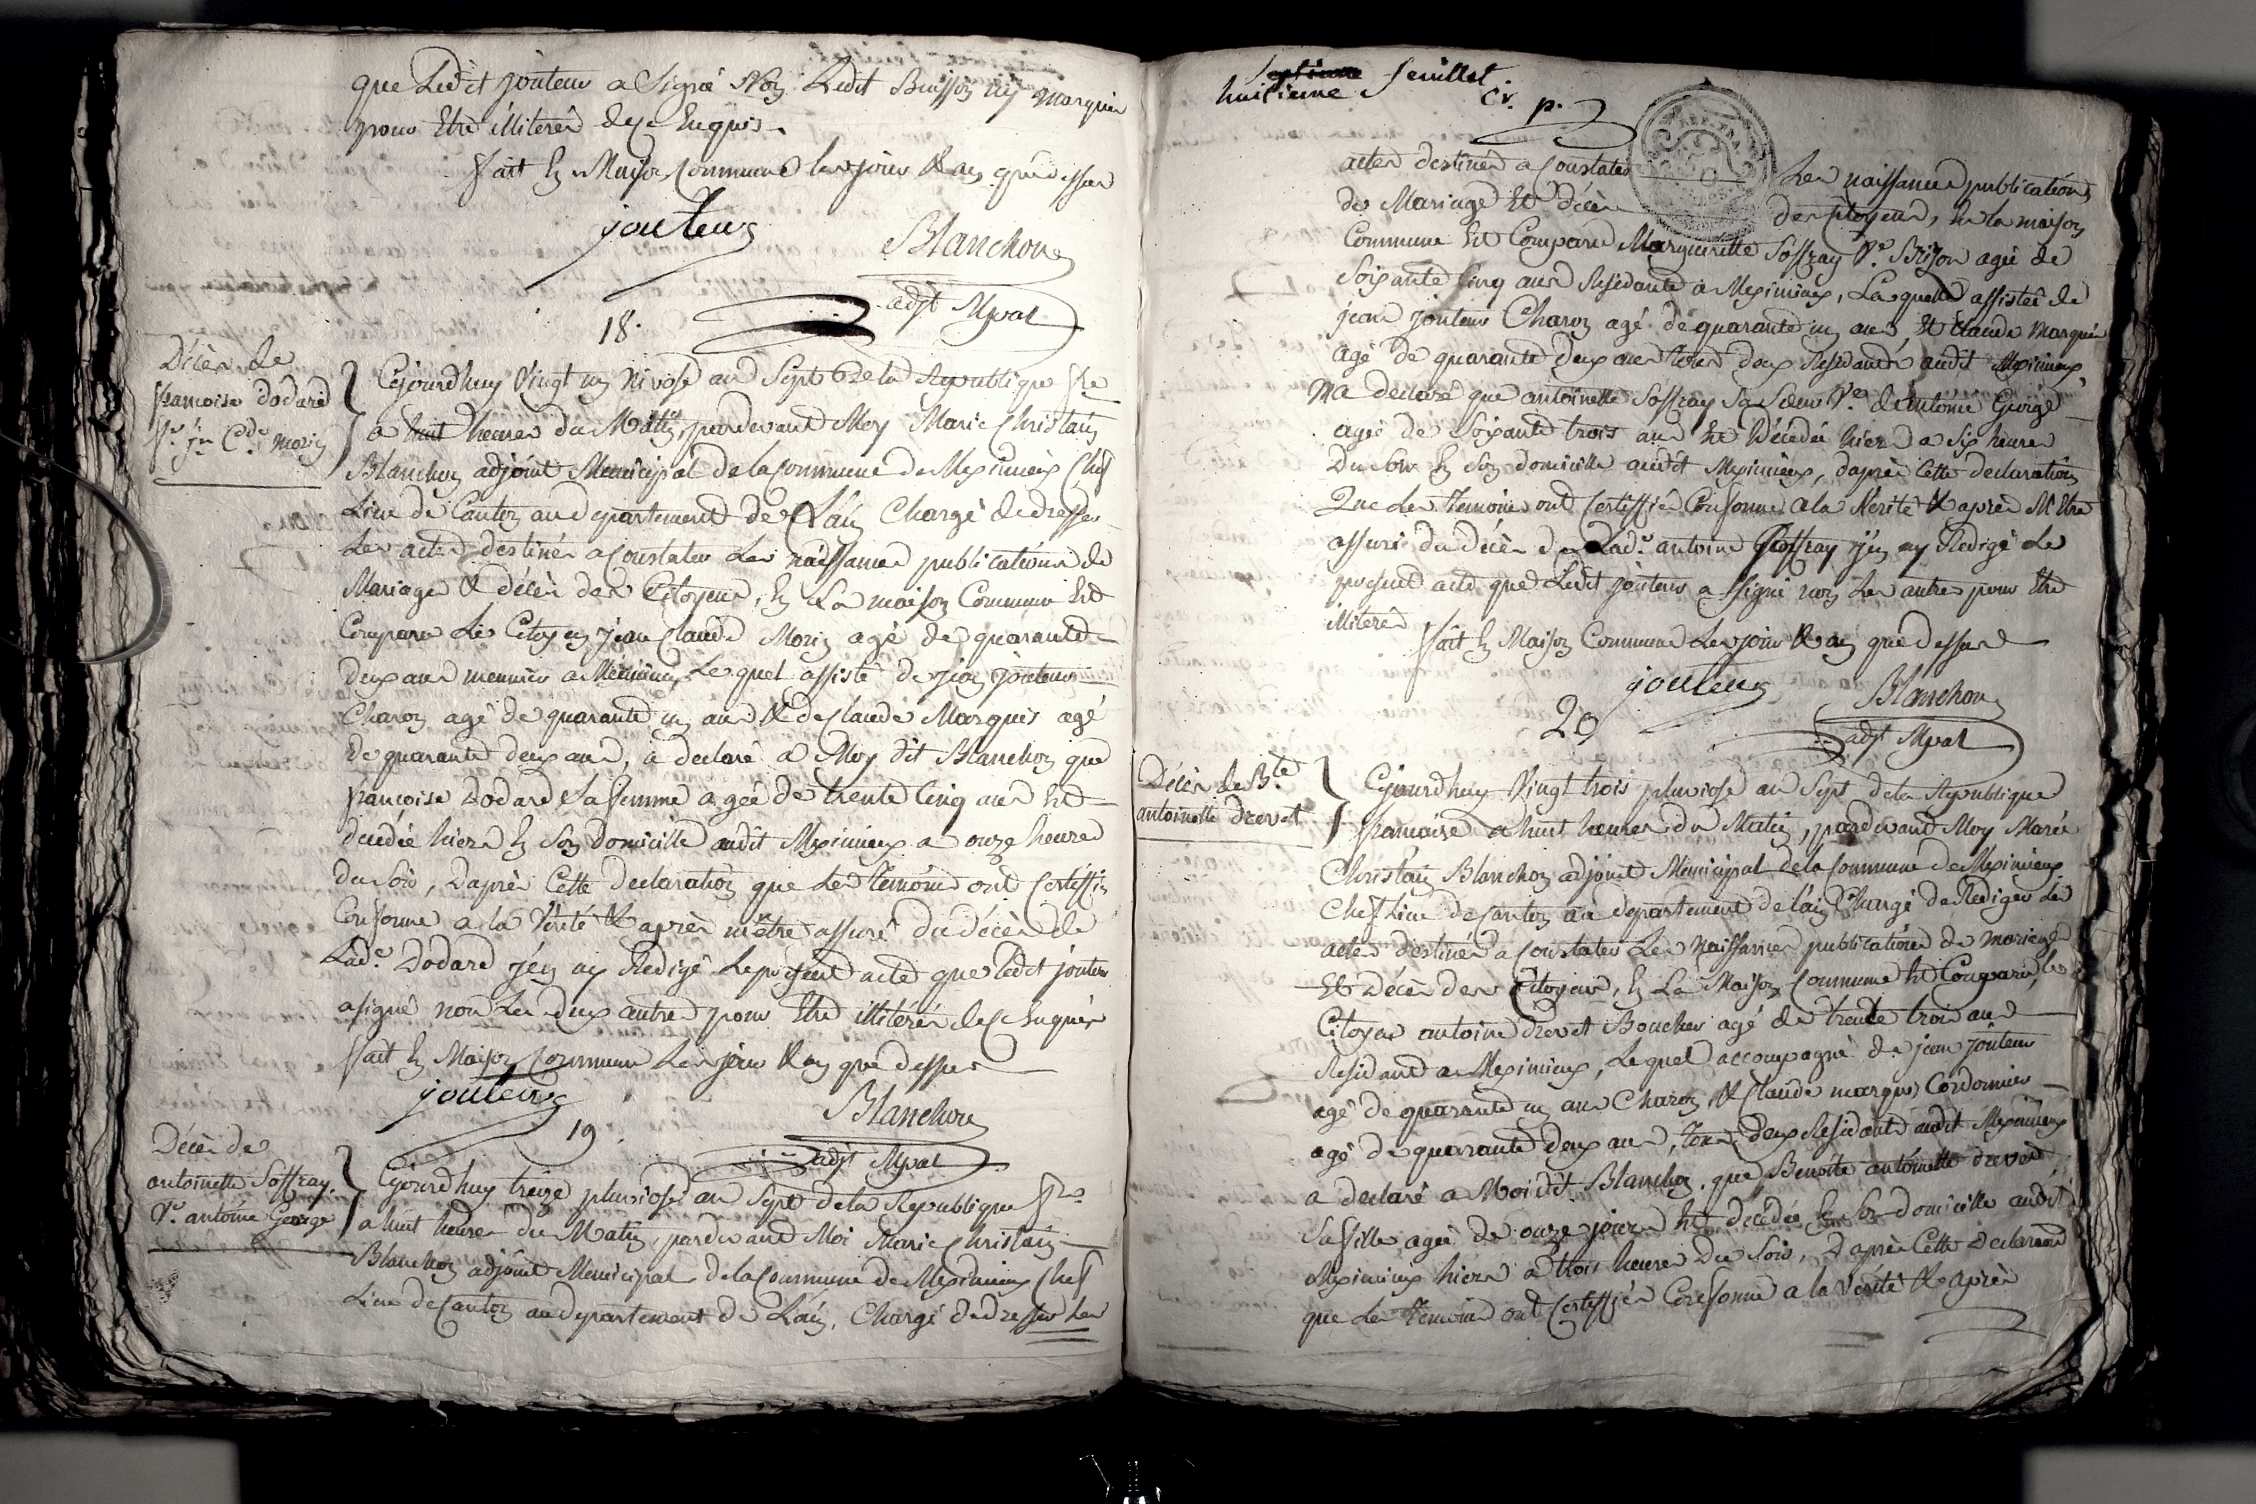 que Ledit jouteur a Signé Non Ledit Buisson ny Marquis
pour Etre illiteré de ce Enquis
fait En Maison Commune les jour & an que dessus
jouteur
Blanchon
adjt Mpal
18.
Décès de
francoise dodard
fe jn Cde morin
Cejourdhuy Vingt un Nivose an Sept de la Republique fse
a huit heures du Matin, pardevant Moy Marie Christain
Blanchon adjoint Municipal de la Commune de Meximieux Chef
Lieu de Canton au departement de L'ain Chargé de dresser
Les actes destinés a Constater Les naissances publications de
Mariage & décès des Citoyens, En La maison Commune Est
Comparu Le Citoyen jean Claude Morin agé de quarante
deux ans meunier a Meximieux Lequel assisté de jean jouteur
Charon agé de quarante un ans & de Claude Marquis agé
de quarante deux ans, a declaré a Moy dit Blanchon que
francoise Dodard Sa femme agée de trente Cinq ans Est
decédée hier En Son domicille audit Meximieux a onze heures
du Soir, Daprès Cette declaration que Les temoins ont Certiffié
Conforme a la Vérité & après m'être assuré du décès de
Lade Dodard j'en ay Redigé Le present acte que Ledit jouteur
a signé non Les deux autres pour Etre illitérés de ce Enquis
fait En Maison Commune Les jour & an que dessus
jouteur
Blanchon
adjt Mpal
19
Décès de
antoinette Soffray
Ve antoine George
Cejourdhuy treize pluviose an Sept de la Republique fse
a huit heures du Matin, pardevant Moi Marie Christain
Blanchon adjoint Municipal de la Commune de Meximieux Chef
Lieu de Canton au departement de L'ain, Chargé de dresser Les
Septieme feuillet
huitieme
Cr. p.
actes destinés a Constater Les naissances publications
de Mariage Et décès des Citoyens, En la maison
Commune Est Comparue Margueritte Soffray Ve Brison agée de
Soixante Cinq ans Residante a Meximieux, Laquelle assistée de
jean jouteur Charon agé de quarante un ans Et Claude Marquis
agé de quarante deux ans tous deux Residants audit Meximieux
Ma declaré que antoinette Soffray Sa Sœur Ve de antoine George
agée de Soixante trois ans Est Décédée hier a Six heures
Du Soir En Son domicille audit Meximieux, daprès Cette declaration
Que Les temoins ont Certiffié Conforme a la Vérité & après M'Etre
assuré du décès de Lade antoine Soffray j'en ay Redigé Le
present acte que Ledit jouteur a Signé non Les autres pour Etre
illiterés
fait En Maison Commune Les jour & an que dessus
jouteur
Blanchon
adjt Mpal
20
Décès de Bte
antoinette drevet
Cejourdhuy Vingt trois pluviose an Sept de la Republique
francaise a huit heures du Matin, pardevant Moy Marie
Christain Blanchon adjoint Municipal de la Commune de Meximieux
Chef Lieu de Canton au departement de l'ain Chargé de Rediger Les
actes destinés a Constater Les Naissances publications de mariage
Et Décès des Citoyens, En La Maison Commune Est Comparu, le
Citoyen antoine drevet Boucher agé de trente trois ans
Residant a Meximieux, Lequel accompagné de jean jouteur
agé de quarante un ans Charon & Claude marquis Cordonnier
agé de quarante deux ans, tous deux Residants audit Meximieux
a declaré a Moi dit Blanchon, que Benoite antoinette drevet
Sa fille agée de onze jours Est decédée En Son domicille audit
Meximieux hier a trois heures Du Soir, Daprès Cette declaration
que Les temoins ont Certiffiée Conforme a la Vérité & après